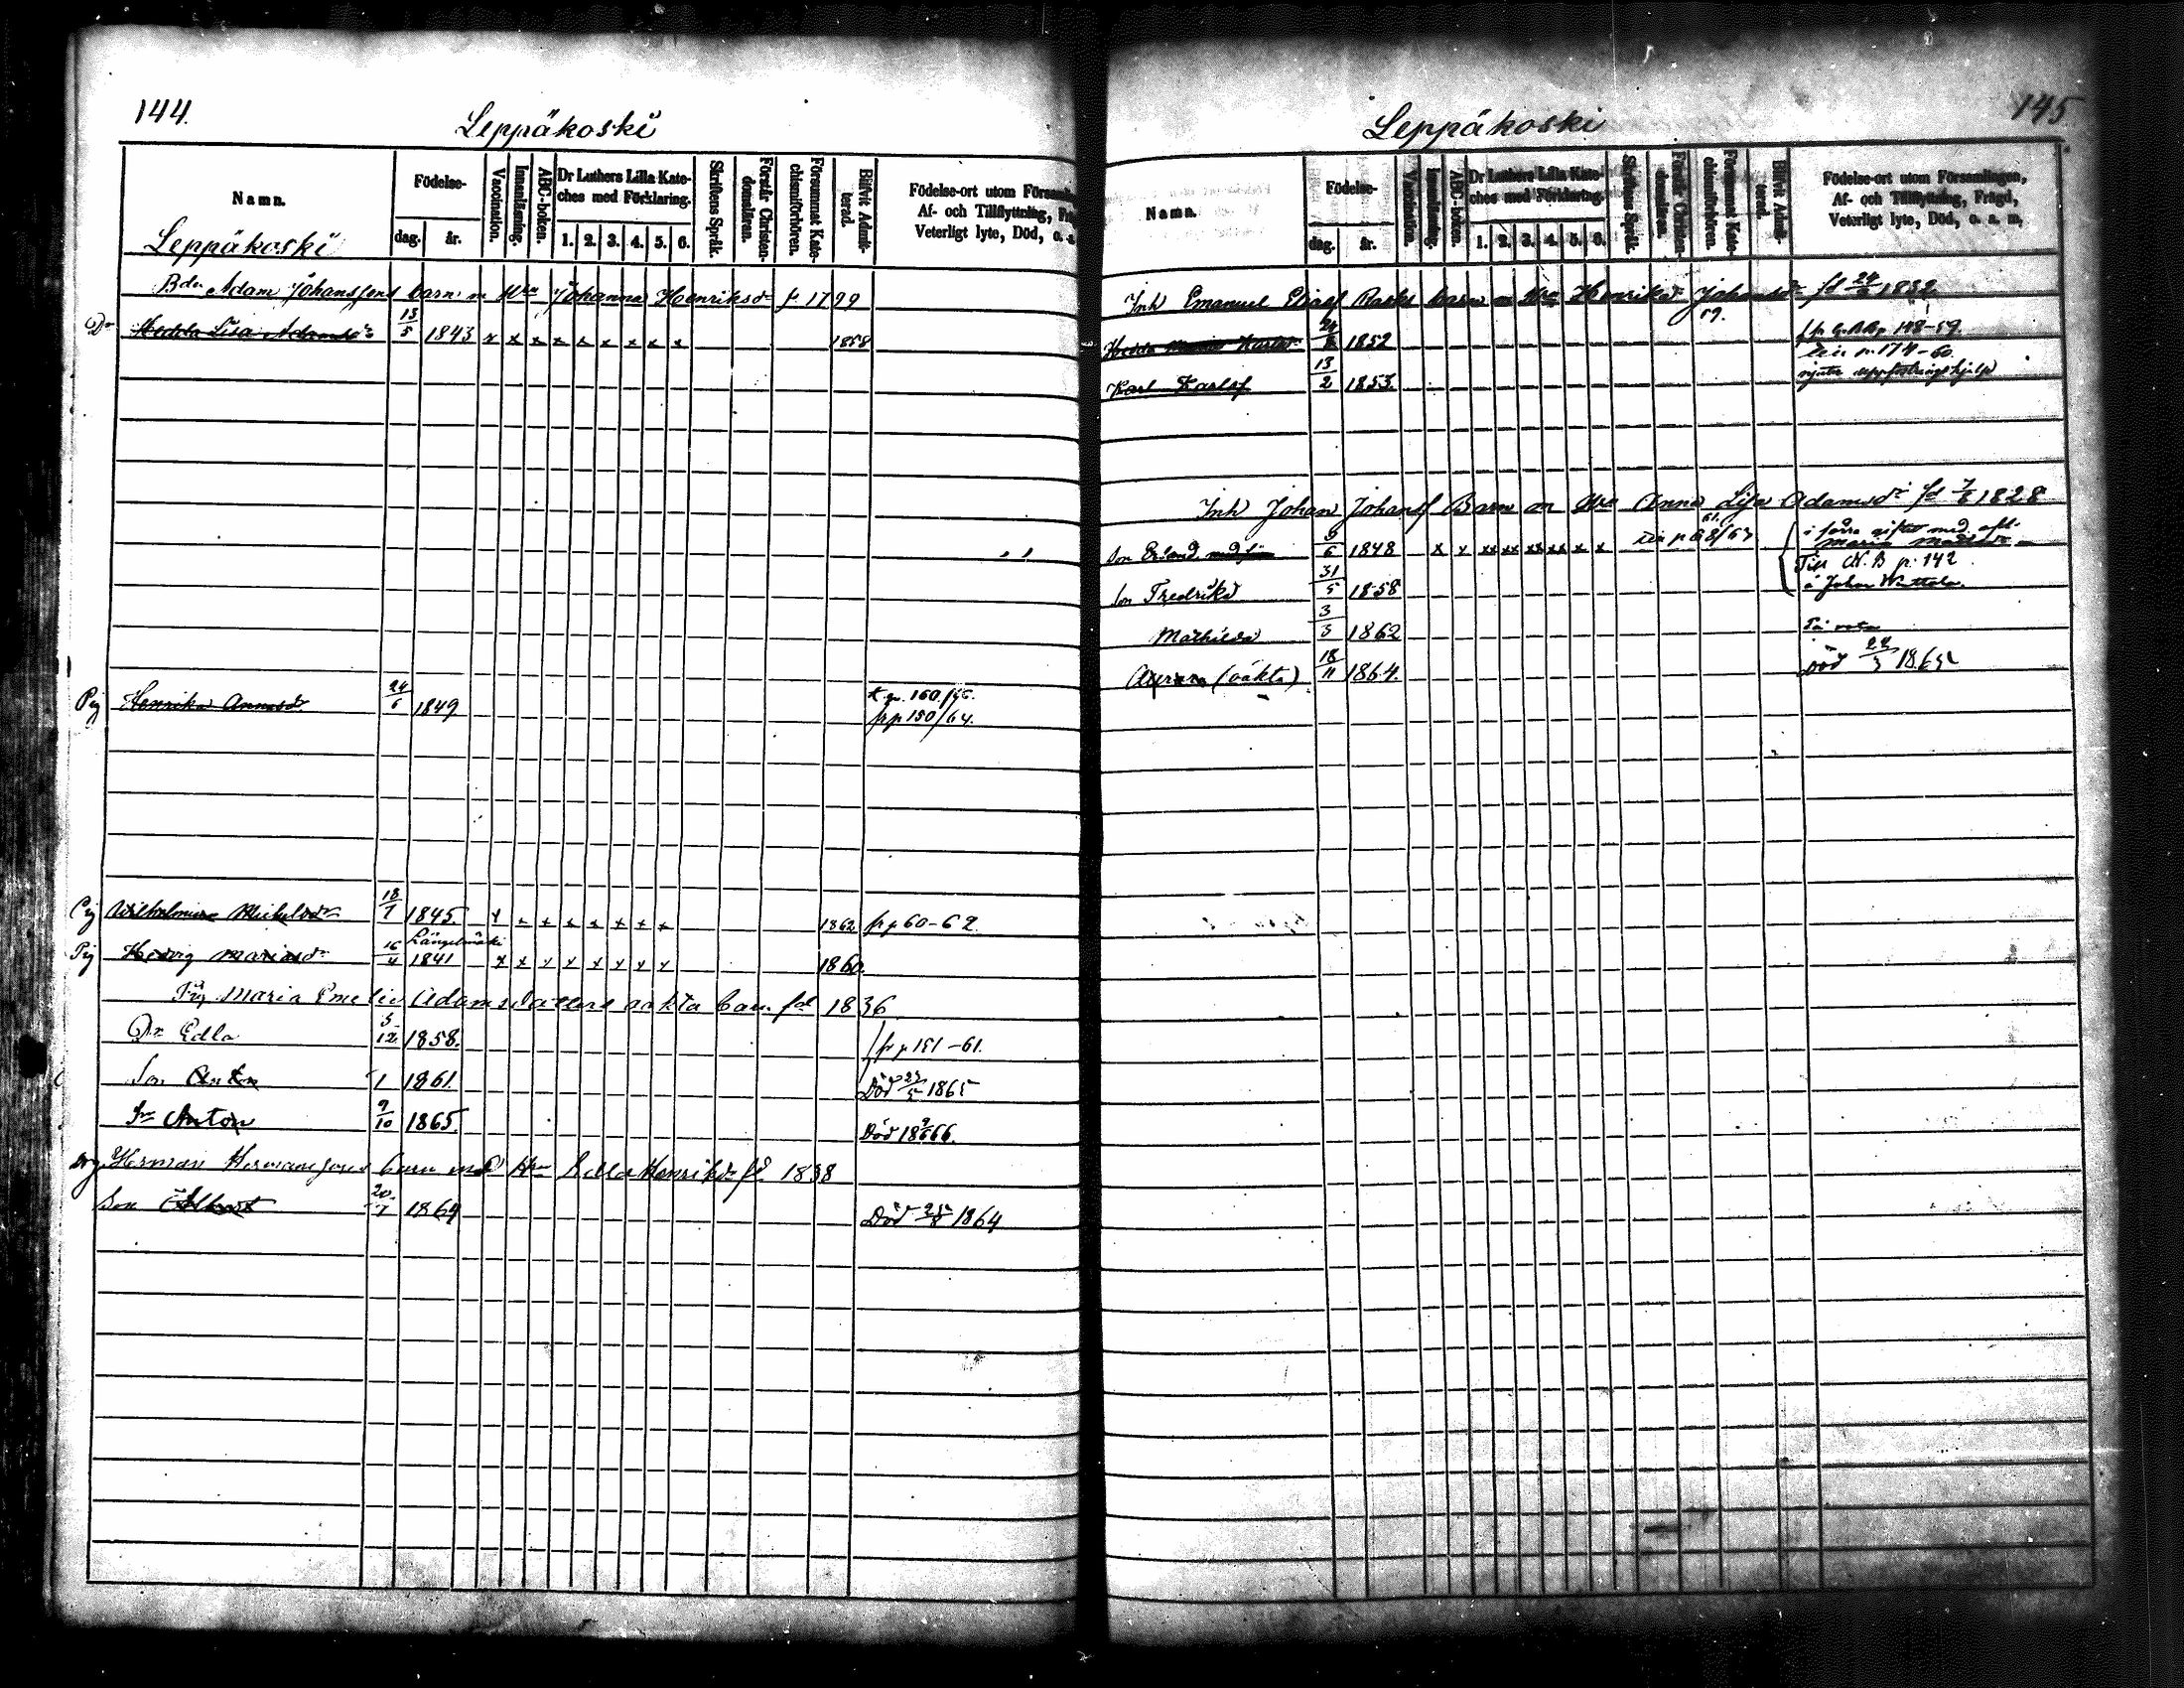 144.
Leppäkoski
Namn.
Födelse-
dag.
år.
Vaccination.
Innanläsning.
ABC-boken.
Dr Luthers Lilla Kate-
ches med Förklaring.
1. 2. 3. 4. 5. 6.
Skriftens Språk.
Förstår Christen-
domsläran.
Försummat Kate-
chismiförhören.
Blifvit Admit-
terad.
Födelse-ort utom Församli
Af- och Tillflyttning, Frä
Veterligt lyte, Död, o. a.
Leppäkoski
Bdn Adam Johanssons barn m Hu Johanna Henriksdr f 1799
Dr Hedda Lisa Adamsdr 13/5 1843 x x x x x x x x x 1858
Pig Henrika Annasdr 24/6 1849 160/66.
fr p 150/64.
Pig Wilhelmina Mickelsdr 18/7 1845 x x x x x x x x 1862 fr p 60-62.
Längelmäki
Pig Hedvig Mariasdr 16/4 1841 x x x x x x x x 1860
Pig Maria Emelie Adamsdotters oäkta barn fd 1836
Dr Edla 5/12 1858. fr p 151-61.
Son Anton 1 1861. Död 23/5 1865
Sn Anton 9/10 1865 Död 18 9/6 66.
Herman Hermanssons barn med Hu Edla Henriksdr fd 1838
Son Albert 20/7 1864 Död 25/8 1864
145
Leppäkoski
Namn.
Födelse-
dag.
år.
Vaccination.
Innanläsning.
ABC-boken.
Dr Luthers Lilla Kate-
ches med Förklaring.
1. 2. 3. 4. 5. 6.
Skriftens Språk.
Förstår Christen-
domsläran.
Försummat Kate-
chismiförhören.
Blifvit Admit-
terad.
Födelse-ort utom Församlingen,
Af- och Tillflyttning, Frägd,
Veterligt lyte, Död, o. a. m.
Inh Emanuel Eliass Rasks barn m Hu Henrika Johansdr fd 24/ 1832
Hedda Maria Karlsdr 24/8 1852 59.
p. 174-60.
Karl Karlsf 13/2 1853 njuter uppfostringshjelp
Inh Johan Johansf Barn m Hu Anna Lisa Adamsdr fd 7/8 1828
Son Erland 5/6 1848 x x xx xx xx xx x x p 68/67 i förra giftet med afl.
Maria Mattsdr
Till K. B p. 142
Son Fredrik 31/5 1858 å Johan
Mathilda 3/3 1862
Aurora (oäkta) 18/11 1864 Död 22/3 1865